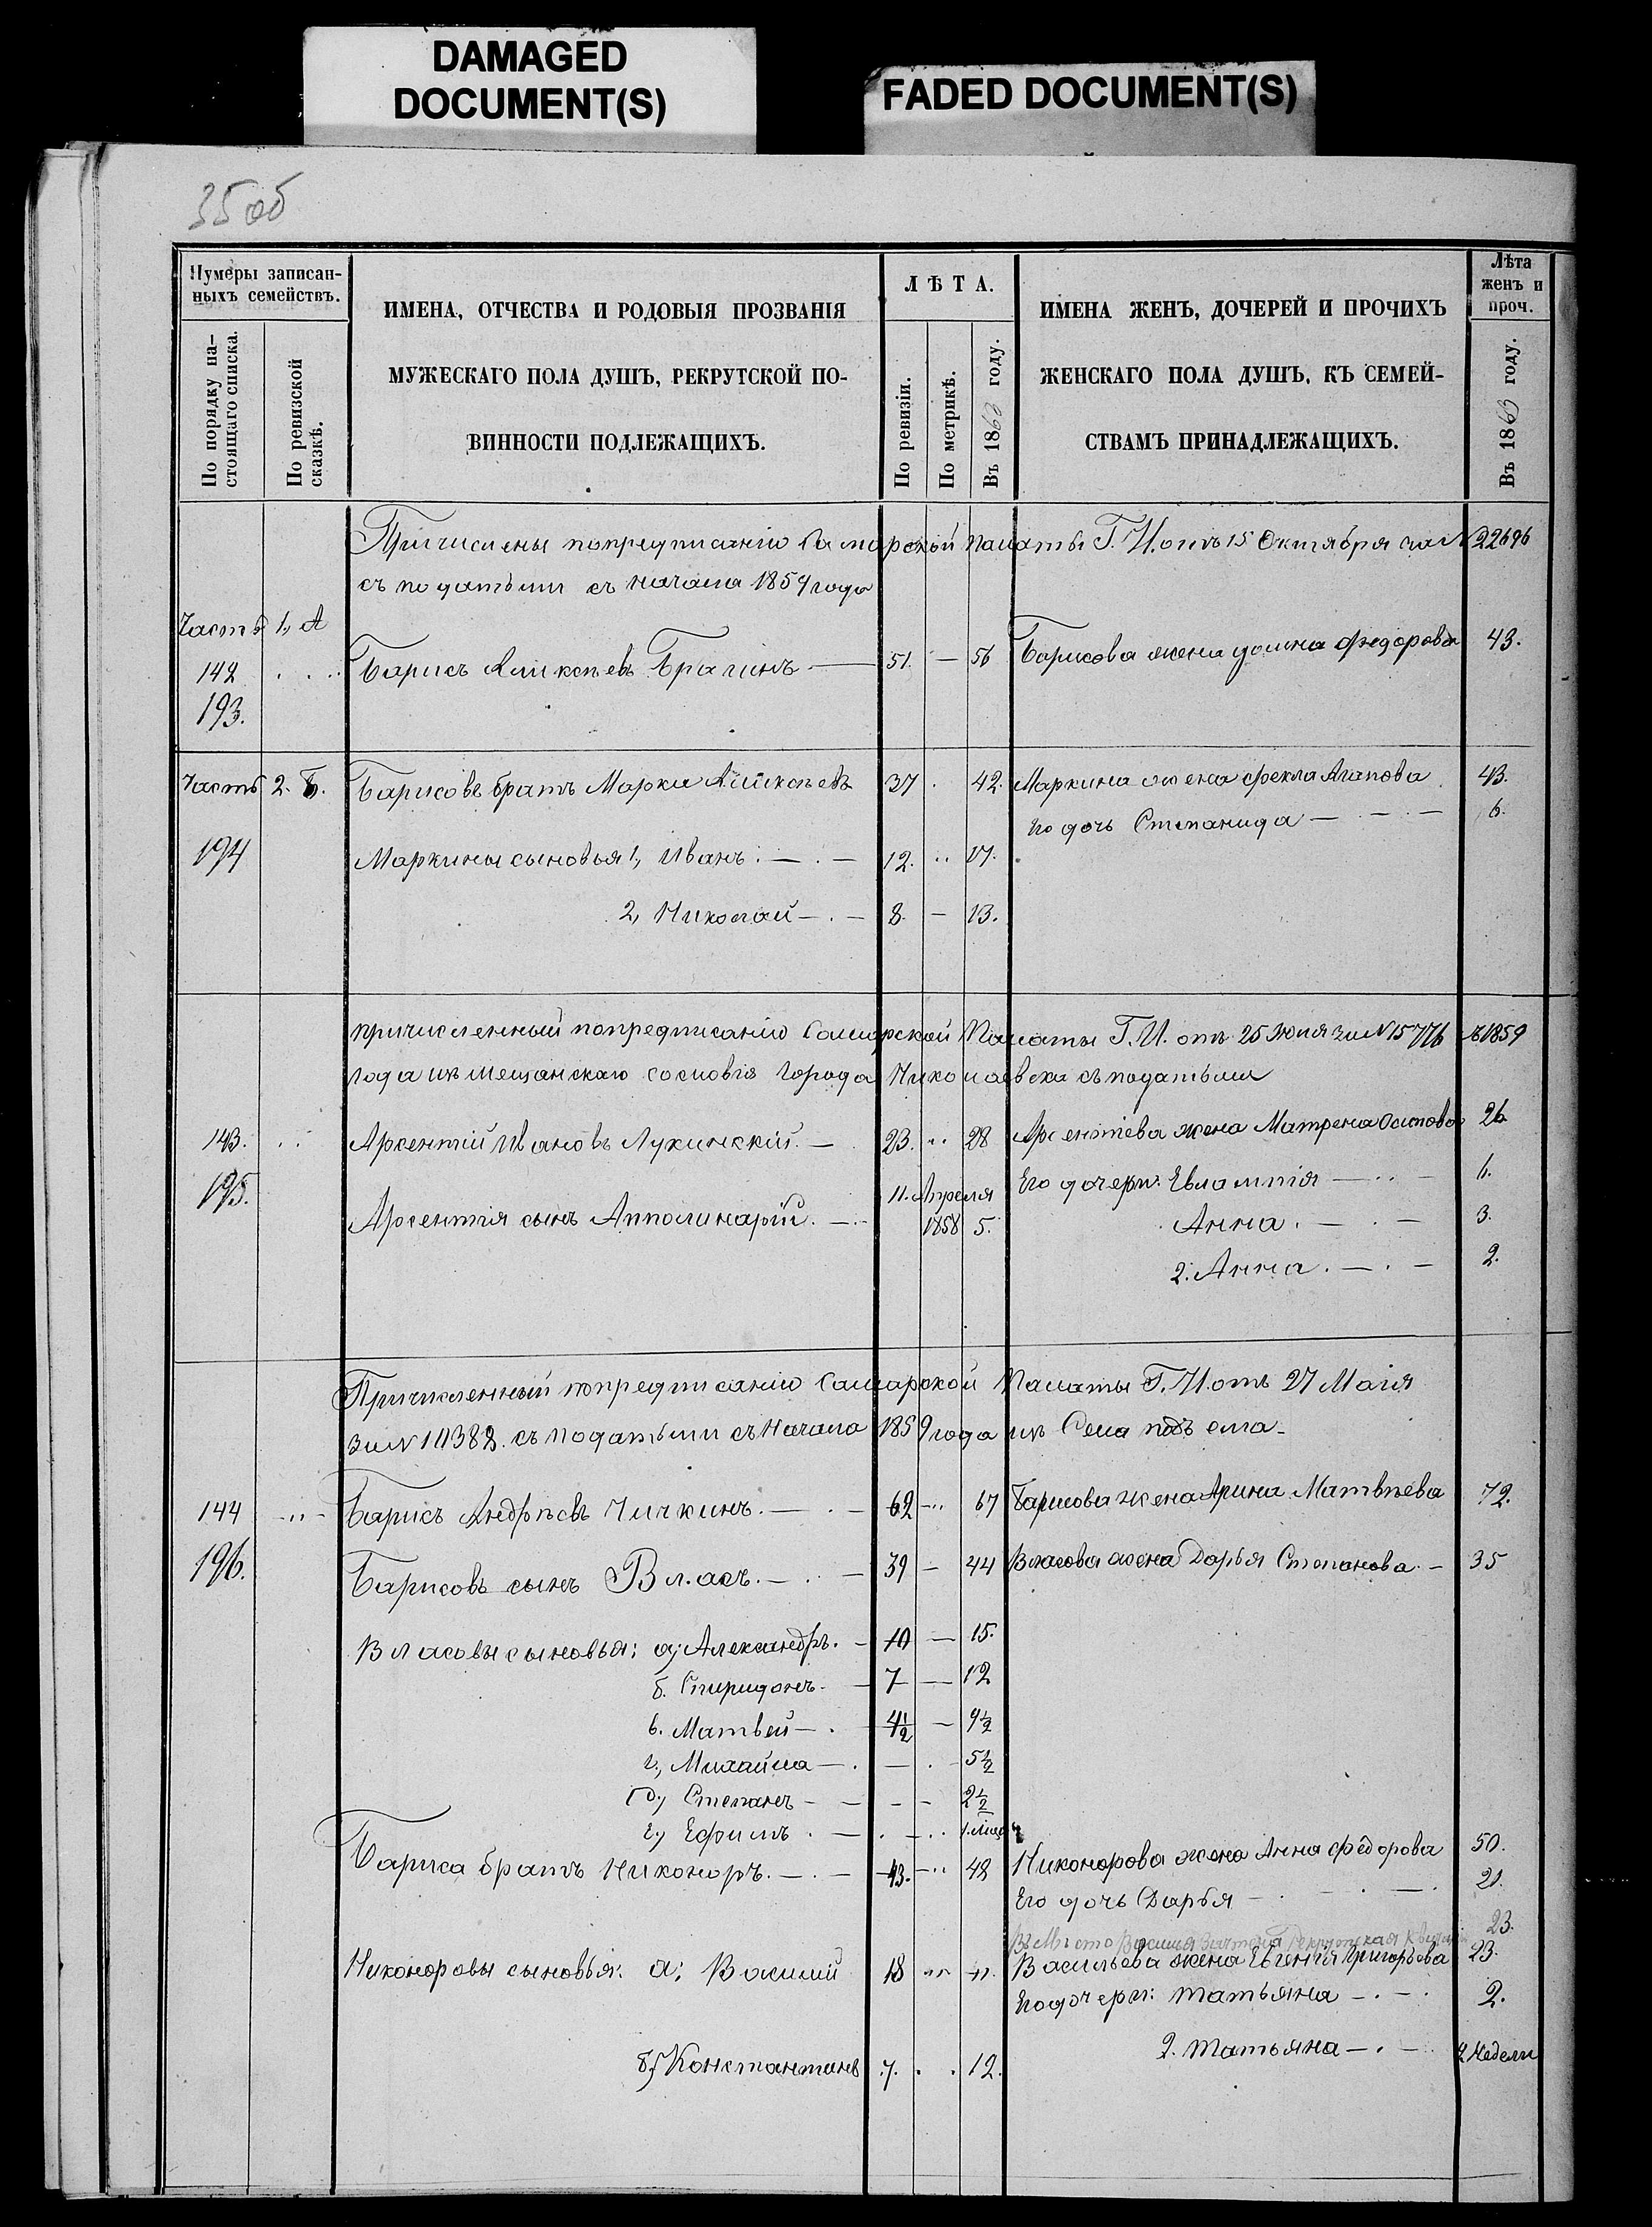 DAMAGED
DOCUMENT(S)
FADED DOCUMENT(S)
35 об
Нумеры записан-
ныхъ семействъ.
По порядку на-
стоящаго списка.
По ревизской
сказкѣ.
ИМЕНА, ОТЧЕСТВА И РОДОВЫЯ ПРОЗВАНІЯ
МУЖЕСКАГО ПОЛА ДУШЪ, РЕКРУТСКОЙ ПО-
ВИННОСТИ ПОДЛЕЖАЩИХЪ.
ЛѢТА.
По ревизіи.
По метрикѣ.
Въ 1863 году.
ИМЕНА ЖЕНЪ, ДОЧЕРЕЙ И ПРОЧИХЪ
ЖЕНСКАГО ПОЛА ДУШЪ, КЪ СЕМЕЙ-
СТВАМЪ ПРИНАДЛЕЖАЩИХЪ.
Лѣта
женъ и
проч.
Въ 1863 году.
Причислены попредписанію Самарской Палаты Г. И. отъ 15 Октября за N 22696
съ податьми съ начала 1859 года
Часть 1, А
142 Барисъ Аликсѣевъ Брагинъ — 51. — 56 Барисова жена Федорова 43.
193.
Часть 2. Б. Барисовъ братъ Марки Аликсѣевъ 37 . 42. Маркина жена Фекла Агапова 43.
Его дочь Степанида — . — . — 6.
194 Маркины сыновья 1, Иванъ. — . — 12. .. 17.
2, Николай — . — 8. — 13.
причисленный попредписанію Самарской Палаты Г. И. отъ 25 Июня за N 15776 1859
года изъ мещанскаго сословія города Николаевска съ податьми
143. .. Арсентій Ивановъ Лукинскій. — 23. .. 28 Арсентіева жена Матрена Осипова 26
195. 11. Апреля Его дочери: Евлампія — .. — 6.
Арсентія сынъ Апполинарій. — .. 1858 5. Анна. — . — 3.
2. Анна. — . — 2.
Причисленный попредписанію Самарской Палаты Г. И. отъ 27 Маія
за N 11382. съ податьми съ Начала 1859 года изъ Села
144 — .. — Барисъ Андрѣевъ Чичкинъ. — . — 62 — .. 67 Барисова жена Арина Матвѣева 72.
196. Барисовъ сынъ Власъ. — .. — 39 — 44 Власова жена Дарья Степанова. — 35
Власовы сыновья: а; Александръ. — 10 — 15.
б. Спиридонъ. — 7 — 12
в. Матвей — . 4½ — 9½
г., Михайла — . — . — 5½
д.) Степанъ — — — — 2½
е.) Ефимъ . — . — .. 1. мѣсяц
Бариса братъ Никоноръ. — . — 43. — .. 48 Никонорова жена Анна Федорова 50.
Его дочь Дарья — . — . — . 21.
Въ Место Василия Рекрутская 23.
Никоноровы сыновья: а; Василий 18 „ „ Васильева жена Евгенія Григорьева 23.
Его дочери: Татьяна — . — . 2.
2. Татьяна — . — Недели
б,) Константинъ 7. . . 12.